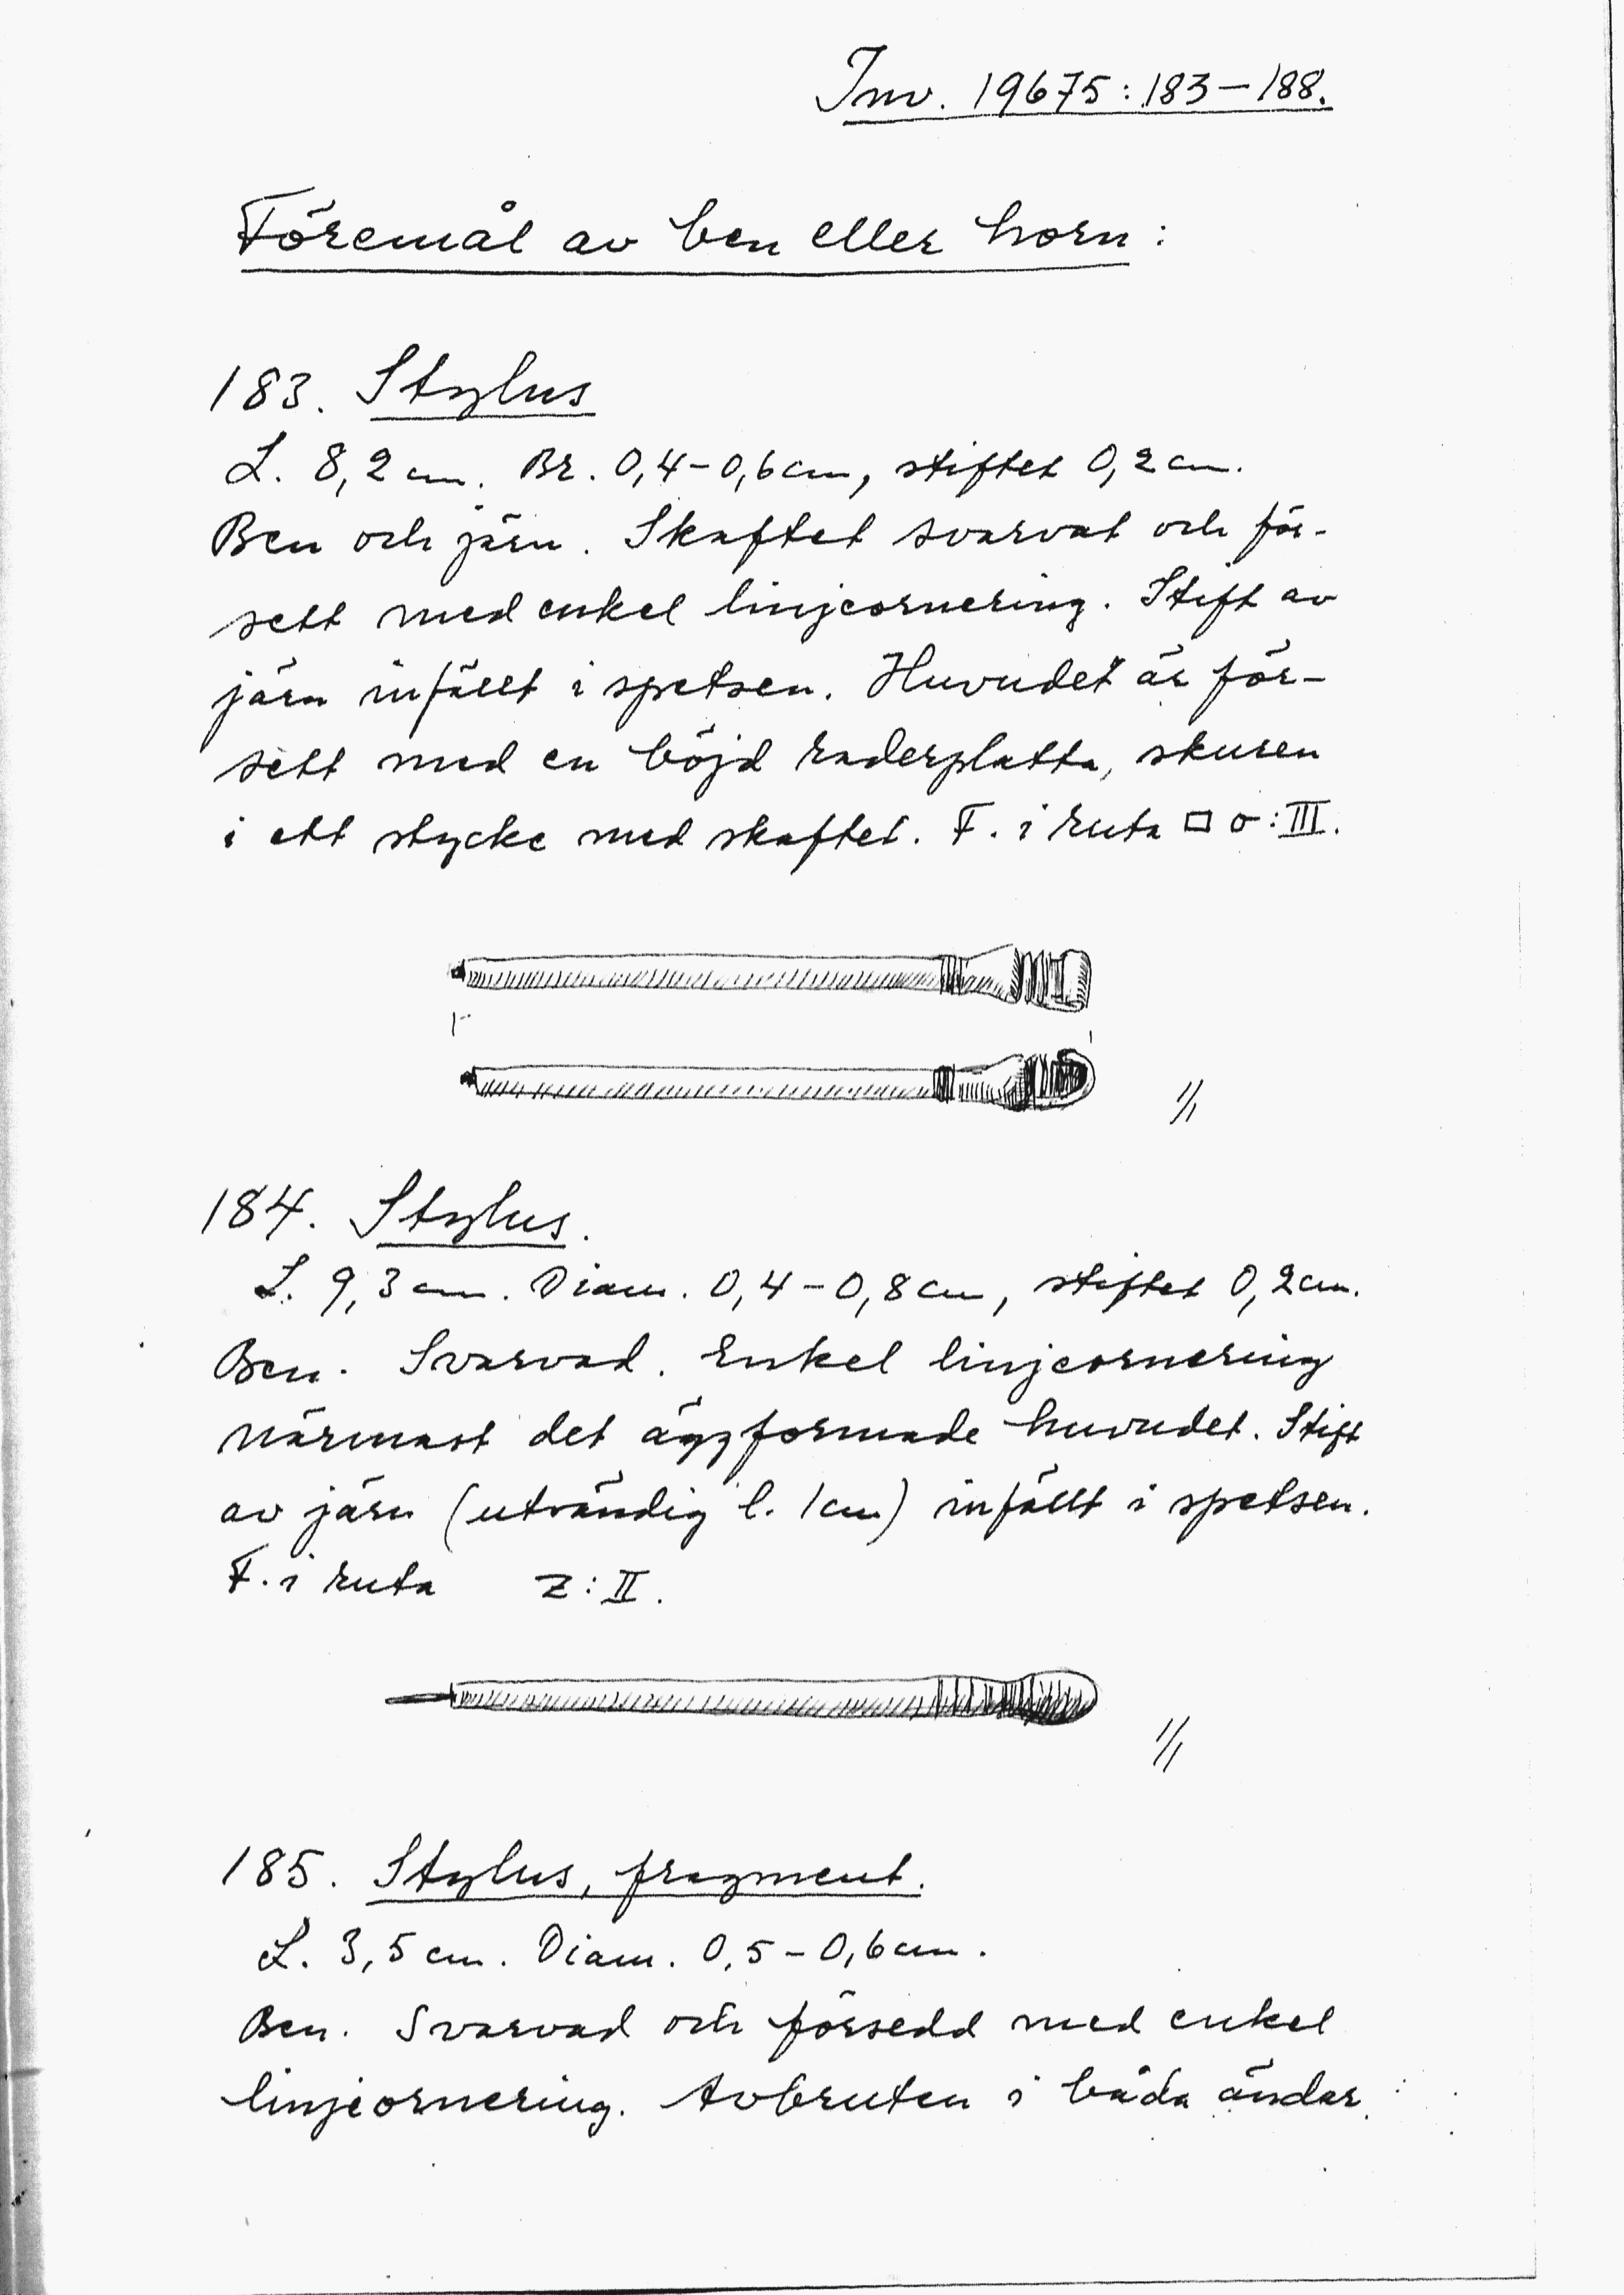 Inv. 19675:183–188.
Föremål av ben eller horn:
183. Stylus
L. 8,2 cm. Br. 0,4–0,6 cm, stiftet 0,2 cm.
Ben och järn. Skaftet svarvat och för-
sett med enkel linjeornering. Stift av
järn infällt i spetsen. Huvudet är för-
sett med en böjd raderplatta, skuren
i ett stycke med skaftet. F. i ruta □ o:III.
1/1
184. Stylus.
L. 9,3 cm. Diam. 0,4–0,8 cm, stiftet 0,2 cm.
Ben. Svarvad. Enkel linjeornering
närmast det äggformade huvudet. Stift
av järn (utvändig l. 1 cm) infällt i spetsen.
F. i ruta z:II.
1/1
185. Stylus, fragment.
L. 3,5 cm. Diam. 0,5–0,6 cm.
Ben. Svarvad och försedd med enkel
linjeornering. Avbruten i båda ändar.